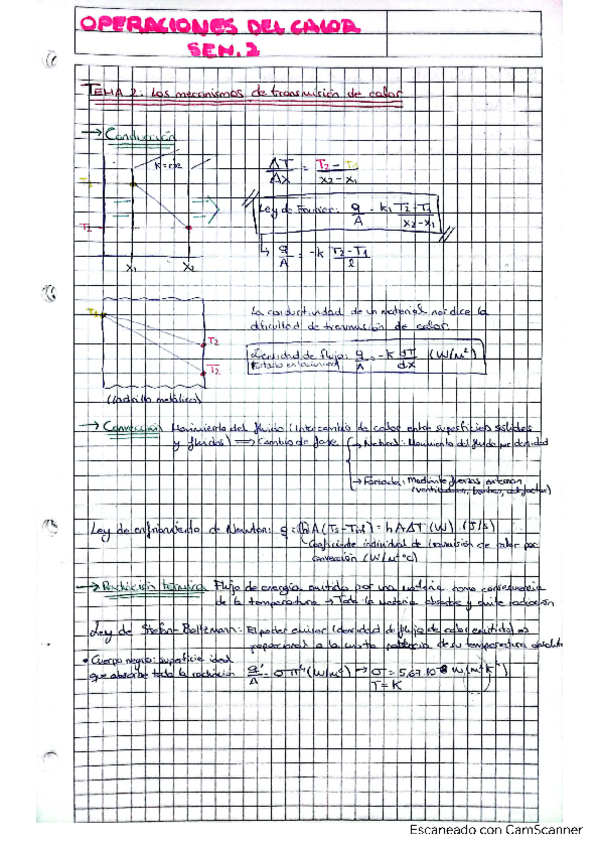 OPERACIONES DEL CALOR
SEM. 2
TEMA 2: Los mecanismos de transmisión de calor
→ Conducción
K = cte
T1
T2
X1 X2
ΔT/Δx = T2 - T1 / x2 - x1
Ley de Fourier: q/A = - k T2 - T1 / x2 - x1
↳ q/A = -k T2 - T1 /
T1
T2
T2
(Ladrillo metálico)
La conductividad de un material nos dice la
dificultad de transmisión de calor.
Densidad de flujo: q/A = -k dT/dx (W/m²)
Estado estacionario
→ Convección Movimiento del fluido (Intercambio de calor entre superficies sólidas
y fluidos) ⇒ Cambio de fase
→ Natural: Movimiento del fluido por densidad
→ Forzada: Mediante fuerzas externas
(ventiladores, bombas, )
Ley de enfriamiento de Newton: q = h A (Ts - ) = h A ΔT (W) (J/s)
Coeficiente individual de transmisión de calor por
convección (W/m² °C)
→ Radiación térmica Flujo de energía emitido por una materia como consecuencia
de la temperatura → Toda la materia absorbe y emite radiación
Ley de Stefan-Boltzmann: El poder emisor (densidad de flujo de calor emitido) es
proporcional a la cuarta potencia de su temperatura absoluta
• Cuerpo negro: superficie ideal
que absorbe toda la radiación
q/A = σT⁴ (W/m²) → σ = 5,67·10⁻⁸ W/(m²K⁴)
T = K
Escaneado con CamScanner